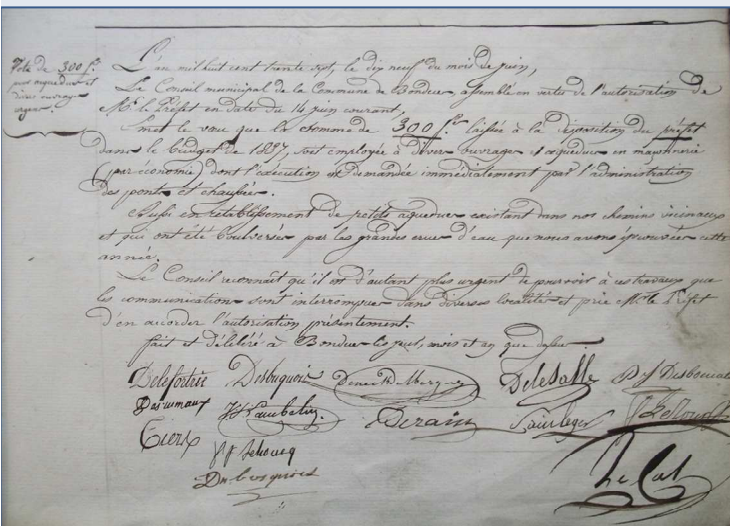 Vote de 300 f.
pour aqueducs et
divers ouvrages
urgens.
L'an mil huit cent trente sept, le dix neuf du mois de juin,
Le Conseil municipal de la Commune de Bondues, assemblé en vertu de l'autorisation de
Mr. le Préfet en date du 14 juin courant,
Emet le voeu que la somme de 300 f. laissée à la disposition du préfet
dans le budget de 1837, soit employée à divers ouvrages et aqueducs en maçonnerie
(par économie) dont l'exécution est demandée immédiatement par l'administration
des ponts et chaussées.
Aussi en rétablissement de petits aqueducs existant dans nos chemins vicinaux
et qui ont été boulversés par les grandes crues d'eau que nous avons éprouvées cette
année.
Le Conseil reconnaît qu'il est d'autant plus urgent de pourvoir à ces travaux que
les communications sont interrompues dans diverses localités et prie Mr. le Préfet
d'en accorder l'autorisation présentement.
fait et délibéré à Bondues les jour, mois et an que dessus.
Delefortrie Desbuquois Delesalle
Desrumaux Derain Sainléger
Le Cat